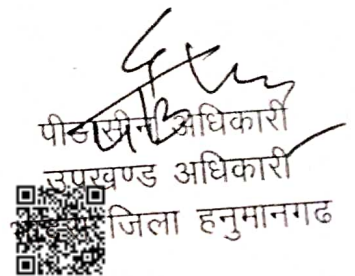 पीठासीन अधिकारी
उपखण्ड अधिकारी
जिला हनुमानगढ